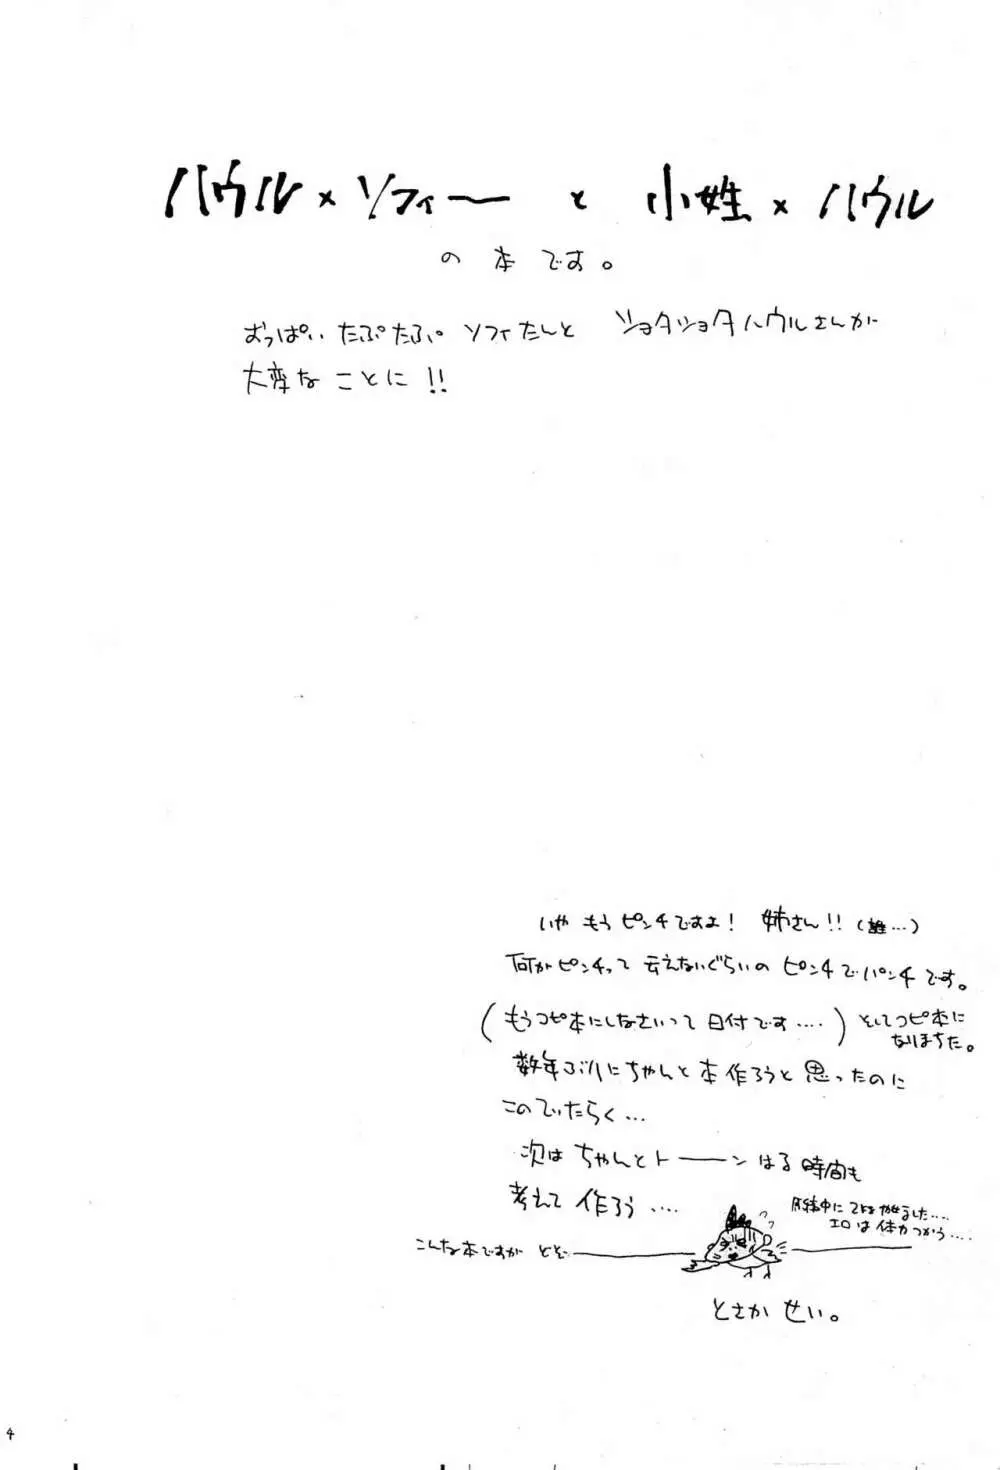 ハウル×ソフィーと小姓×ハウル
の本です。
おっぱいたぷたぷソフィたんと ショタショタハウルさんが
大変なことに!!
いや もう ピンチですよ! 姉さん!!(誰…)
何がピンチって 云えないぐらいの ピンチでパンチです。
(もうコピ本にしなさいって日付です....) そしてコピ本に
なりほちた。
数年ぶりにちゃんと本作ろうと思ったのに
このていたらく…
次は ちゃんとトーーン はる 時間も
考えて 作ろう....
中に
ました....
エロは体力つかう....
こんな本ですが どぞ
とさか せい。
4